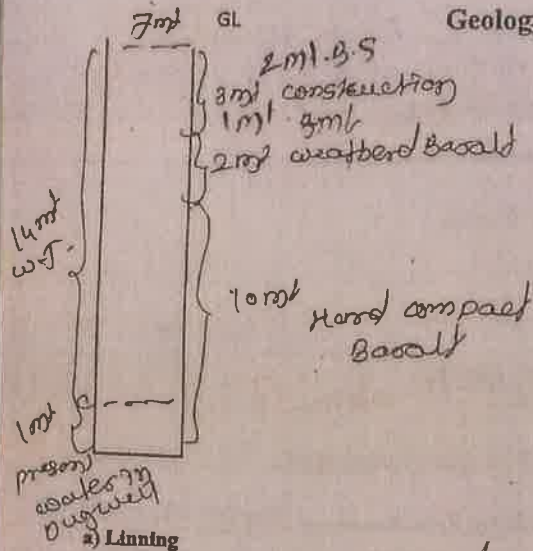 7mt GL Geolog
2mt. B.S
3mt construction
1mt
2mt weatherd Basalt
14mt
W.T.
10mt Hard compact
Basalt
1mt
present
water in
Dugwell
a) Linning